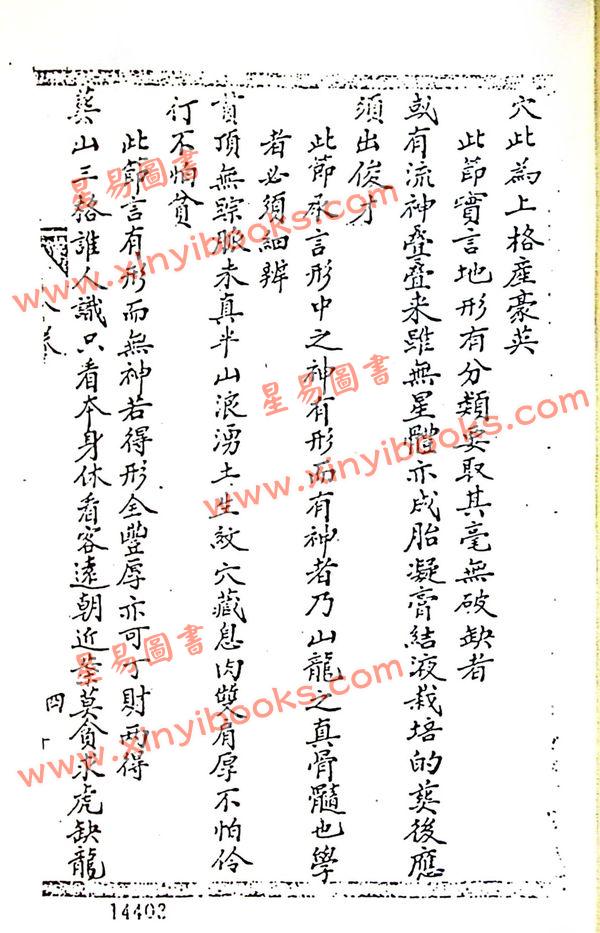 穴此為上格産豪英
此節實言地形有分類要取其毫無破缺者
或有流神叠叠来雖無星體亦成胎凝膏結液栽培的葬後應
須出俊才
此節承言形中之神有形而有神者乃山龍之真骨髓也學
者必須細辨
貧頂無踪脈未真半山浪湧土生紋穴藏息肉雙肩厚不怕伶
仃不怕貧
此節言有形而無神若得形全豐厚亦可丁財兩得
葬山三格誰人識只看本身休看客遠朝近案莫貪求虎缺龍
卷
四十
14403
星易圖書
www.xinyibooks.com
星易圖書
www.xinyibooks.com
星易圖書
www.xinyibooks.com